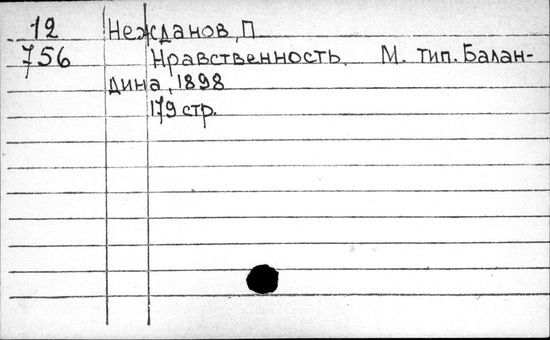 12 Нежданов, П
756 Нравственность. М. тип. Балан-
дина, 1898
179 стр.